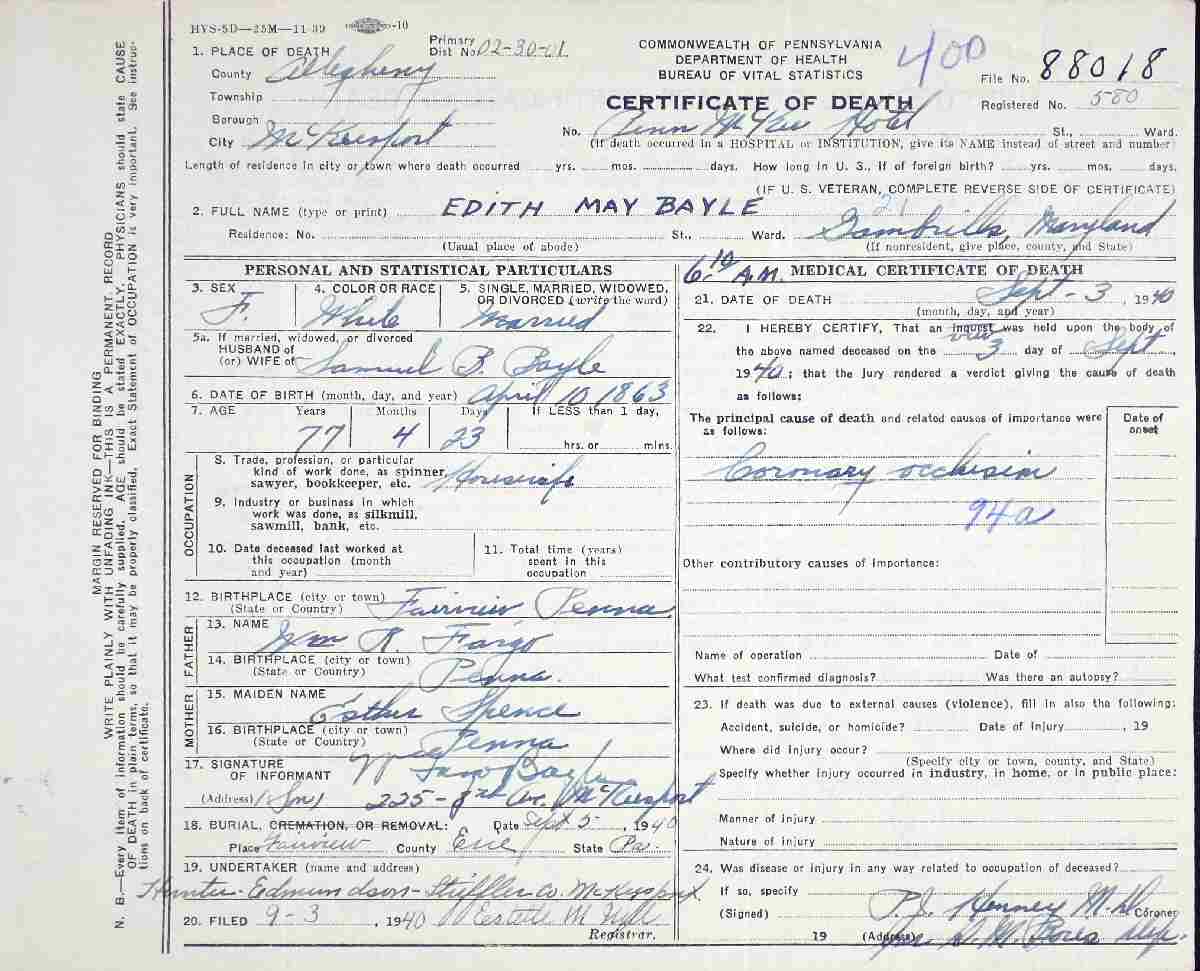 HVS-5D—25M—11-39 -10
Primary Dist No. 02-30-01
COMMONWEALTH OF PENNSYLVANIA
DEPARTMENT OF HEALTH
BUREAU OF VITAL STATISTICS
400
File No. 88018
CERTIFICATE OF DEATH
Registered No. 580
1. PLACE OF DEATH
County Allegheny
Township
Borough
City McKeesport
No. Penn McKee Hotel St., Ward.
(If death occurred in a HOSPITAL or INSTITUTION, give its NAME instead of street and number)
Length of residence in city or town where death occurred yrs. mos. days. How long in U. S., if of foreign birth? yrs. mos. days.
(IF U. S. VETERAN, COMPLETE REVERSE SIDE OF CERTIFICATE)
2. FULL NAME (type or print) EDITH MAY BAYLE
21
Residence: No. St., Ward. Gambrills, Maryland
(Usual place of abode) (If nonresident, give place, county, and State)
PERSONAL AND STATISTICAL PARTICULARS
3. SEX F.
4. COLOR OR RACE White
5. SINGLE, MARRIED, WIDOWED, OR DIVORCED (write the word) Married
5a. If married, widowed, or divorced
HUSBAND of
(or) WIFE of Samuel B. Bayle
6. DATE OF BIRTH (month, day, and year) April 10 1863
7. AGE Years Months Days If LESS than 1 day,
77 4 23 hrs. or mins.
OCCUPATION
8. Trade, profession, or particular
kind of work done, as spinner,
sawyer, bookkeeper, etc. Housewife
9. Industry or business in which
work was done, as silkmill,
sawmill, bank, etc.
10. Date deceased last worked at
this occupation (month
and year)
11. Total time (years)
spent in this
occupation
12. BIRTHPLACE (city or town) Fairview Penna.
(State or Country)
FATHER
13. NAME Wm R. Fargo
14. BIRTHPLACE (city or town)
(State or Country) Penna.
MOTHER
15. MAIDEN NAME Esther Spence
16. BIRTHPLACE (city or town)
(State or Country) Penna
17. SIGNATURE
OF INFORMANT Bayle
(Address) (Son) 225- Ave. McKeesport
18. BURIAL, CREMATION, OR REMOVAL: Date Sept 5, 1940
Place Fairview County Erie State Pa.
19. UNDERTAKER (name and address)
Hunter-Edmundson-Striffler Co. McKeesport
20. FILED 9-3, 1940 M
Registrar.
6:10 A.M. MEDICAL CERTIFICATE OF DEATH
21. DATE OF DEATH Sept-3, 1940
(month, day, and year)
22. I HEREBY CERTIFY, That an inquest was held upon the body of
view
the above named deceased on the 3 day of Sept,
1940; that the jury rendered a verdict giving the cause of death
as follows:
The principal cause of death and related causes of importance were
as follows:
Date of
onset
Coronary occlusion
94a
Other contributory causes of importance:
Name of operation Date of
What test confirmed diagnosis? Was there an autopsy?
23. If death was due to external causes (violence), fill in also the following:
Accident, suicide, or homicide? Date of injury, 19
Where did injury occur?
(Specify city or town, county, and State)
Specify whether injury occurred in industry, in home, or in public place:
Manner of injury
Nature of injury
24. Was disease or injury in any way related to occupation of deceased?
If so, specify
(Signed) P.J. Henney M.D. Coroner
19 (Address) Dep.
MARGIN RESERVED FOR BINDING
WRITE PLAINLY WITH UNFADING INK—THIS IS A PERMANENT RECORD
N. B.—Every item of information should be carefully supplied. AGE should be stated EXACTLY. PHYSICIANS should state CAUSE
OF DEATH in plain terms, so that it may be properly classified. Exact Statement of OCCUPATION is very important. See instruc-
tions on back of certificate.